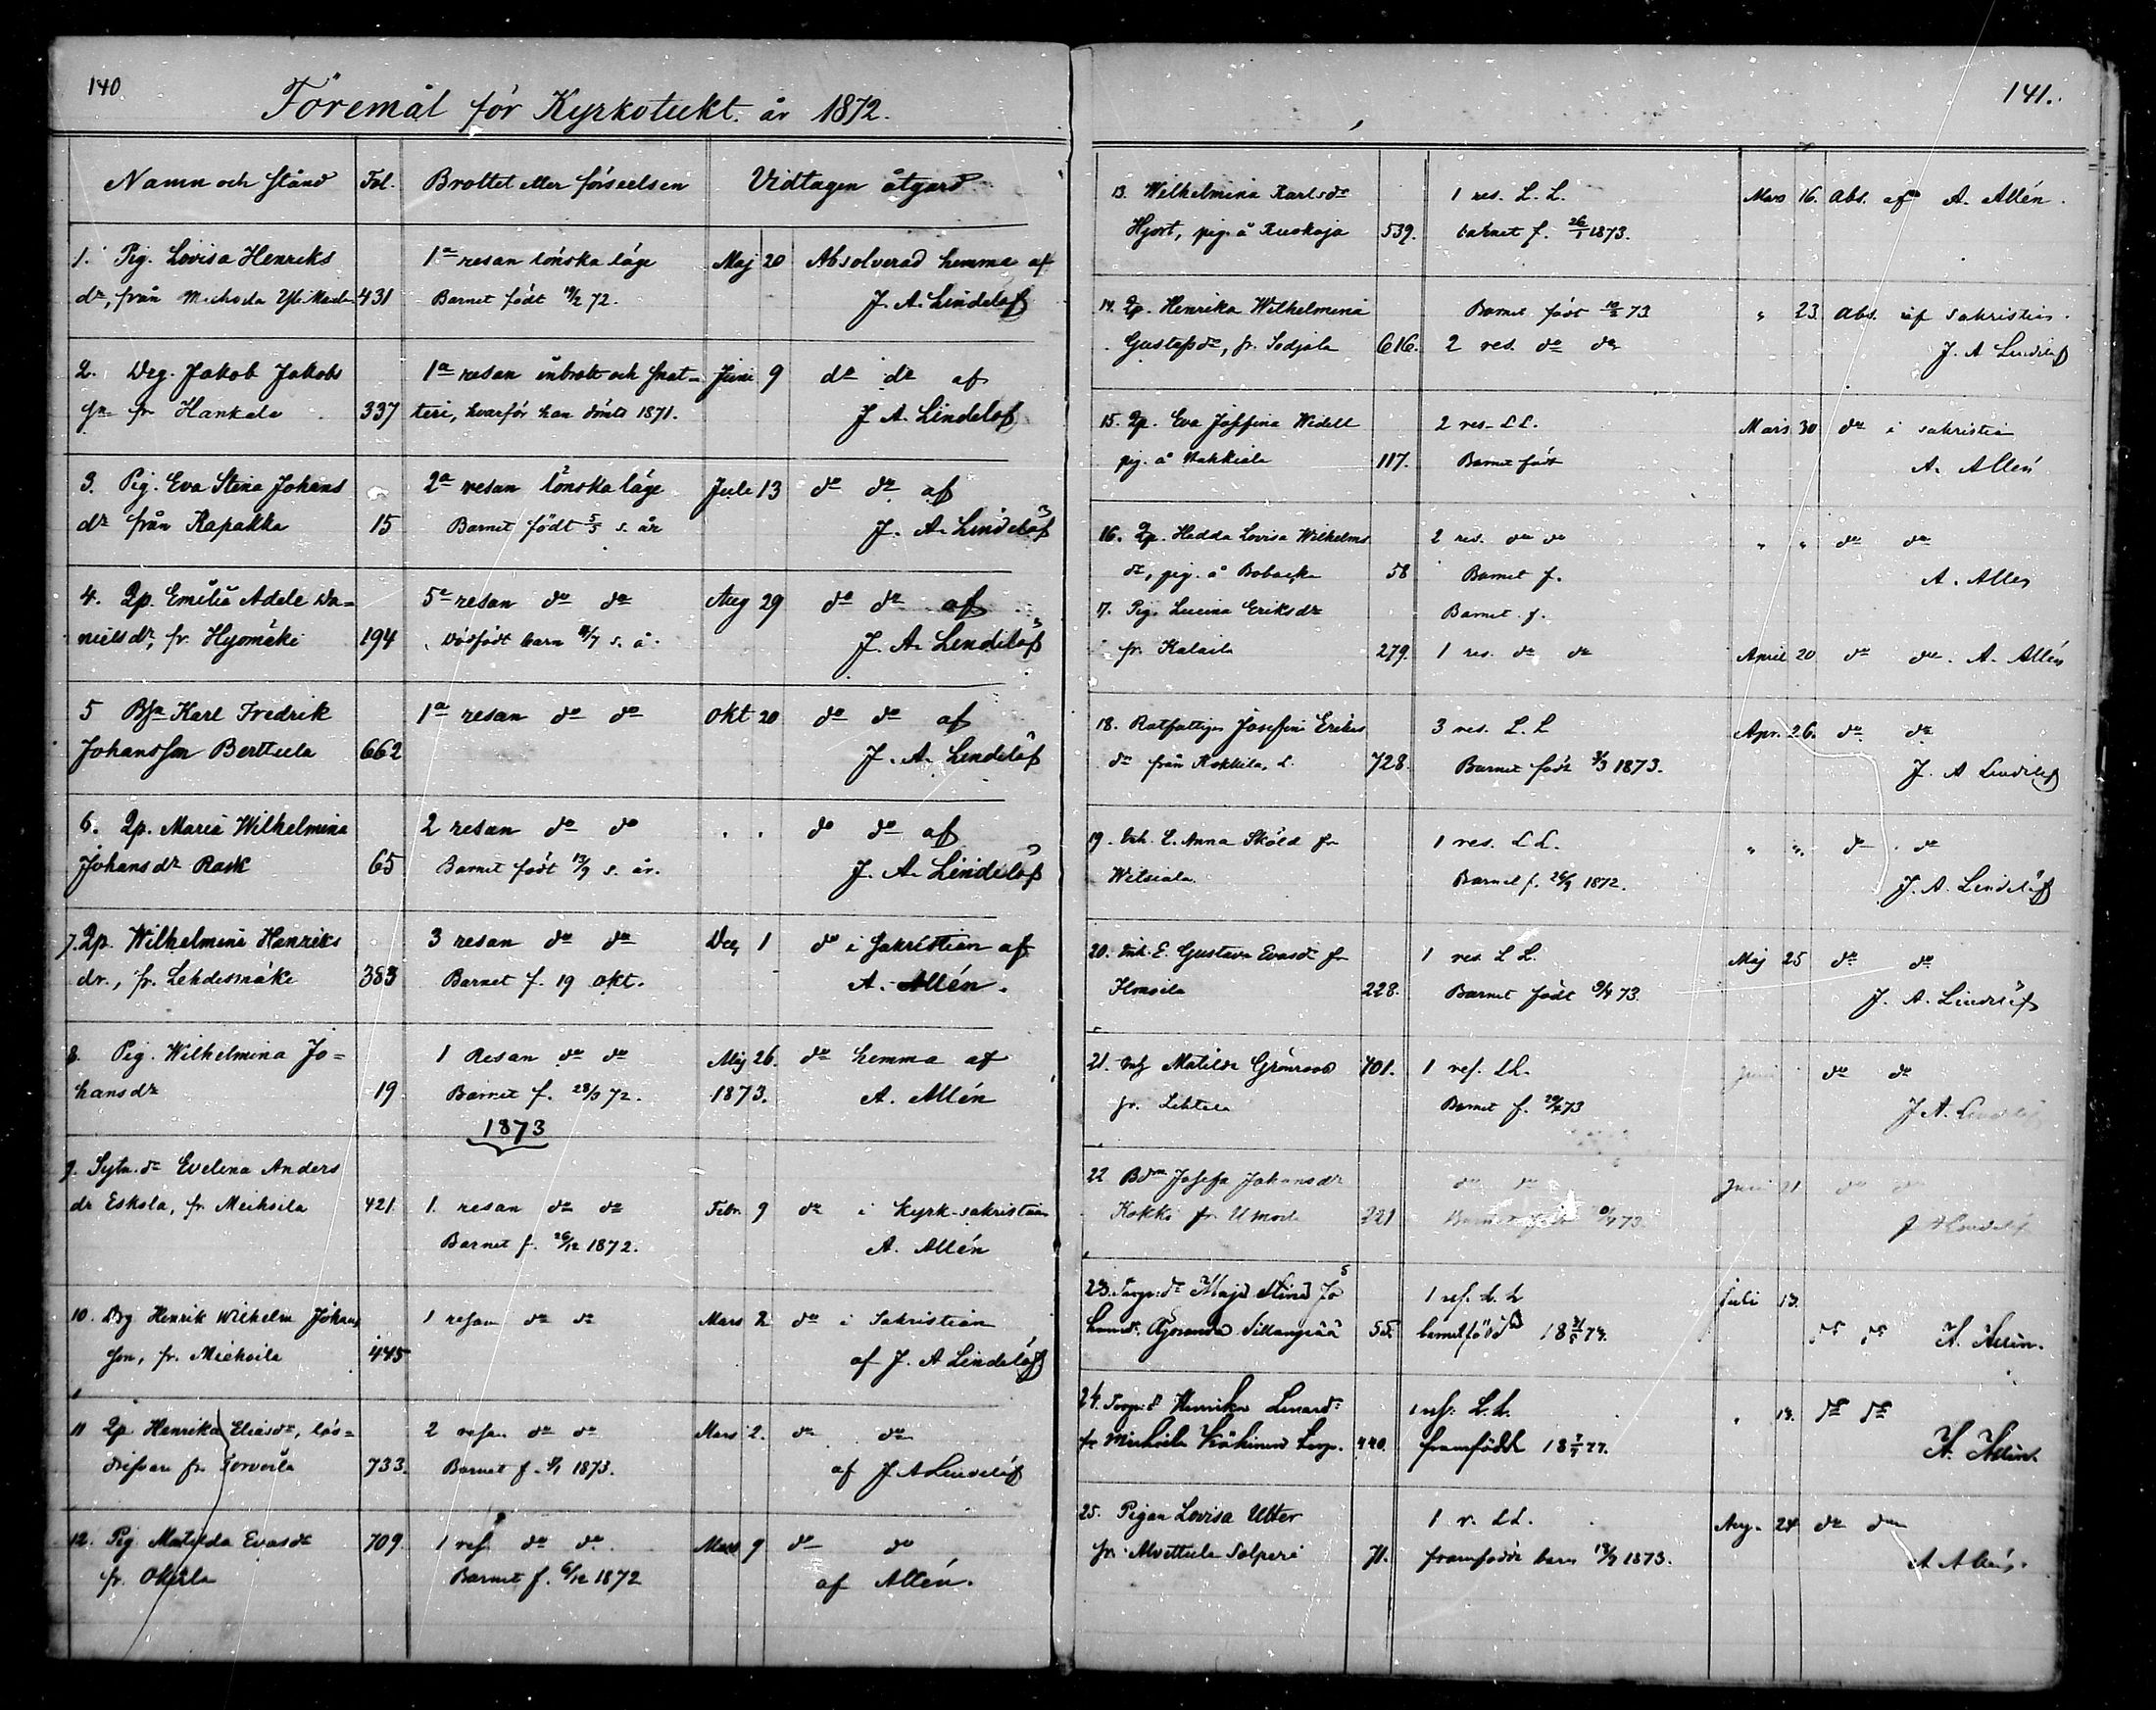 140
Föremål för Kyrkotukt. år 1872.
Namn och stånd Fol. Brottet eller förseelsen Vidtagen åtgärd
1. Pig. Lovisa Henriks 1a resan lönskaläge Maj 20 Absolverad hemma af
dr, från 431 Barnet födt 19/2 72. J. A. Lindelöf
2. Drg. Jakob Jakobs 1a resan inbrott och snat- Juni 9 do do af
sn fr Hankala 337 teri, hvarför han dömts 1871. J. A. Lindelöf
3. Pig. Eva Stina Johans 2a resan lönskaläge Juli 13 do do af
dr från Rapakka 15 Barnet födt 5/5 s. år J. A. Lindelöf
4. Qp. Emilia Adele Da- 5e resan do do Aug 29 do do af
niels dr, fr. Hyömäki 194 Dödfödt barn /7 s. å. J. A. Lindelöf
5 Bsn Karl Fredrik 1a resan do do Okt 20 do do af
Johansson Berttula 662 J. A. Lindelöf
6. Qp. Maria Wilhelmina 2 resan do do " " do do af
Johans dr Rask 65 Barnet födt 13/9 s. år. J. A. Lindelöf
7. Qp. Wilhelmina Henriks 3 resan do do Dec 1 do i Sakristian af
dr., fr. Lehdesmäki 383 Barnet f. 19 Okt. A. Allén.
8. Pig. Wilhelmina Jo- 1 Resan do do Maj 26. do hemma af
hansdr 19 Barnet f. 28/3 72. 1873. A. Allén
1873
9. Sytn. dr Evelina Anders
dr Eskola, fr. Meihoila 421. 1. resan do do Febr. 9 do i Kyrk-sakristian
Barnet f. 26/12 1872. A. Allén
10. Drg Henrik Wilhelm Johans 1 resan do do Mars 2 do i Sakristian
son, fr. Miehoila 445 af J. A Lindelöf
11 Qp Henrika Eliasdr, lös- 2 resan do do Mars 2. do do
drifvare fr. Torvoila 733. Barnet f. /1 1873. af J A Lindelöf
12. Pig Matilda Evasdr 709 1 res. do do Mars 9 do do
fr. Barnet f. 6/12 1872 af Allén.
141.
13. Wilhelmina Karlsdr 1 res. L. L. Mars 16. Abs. af A. Allén.
Hjort, pig. å Ruokoja 539. barnet f. 26/1 1873.
14. Qp. Henrika Wilhelmina Barnet födt 73 " 23. Abs. i sakristian.
Gustafsdr, fr. Sodjala 616. 2 res. do do J. A Lindelöf
15. Qp. Eva Josefina Widell 2 res. L L. Mars 30 do i sakristia
pig. å 117. Barnet födt A. Allén
16. Qp. Hedda Lovisa Wilhelms 2 res. do do " " do do
dr, pig. å 58 Barnet f. A. Allén
17. Pig. Lucina Eriksdr Barnet f.
fr. Kalaila 279. 1 res. do do April 20 do do. A. Allén
18. Rotfattiga Josefina Eriks 3 res. L. L Apr. 26. do do
dr från Kokkila 728. Barnet födt /3 1873. J. A Lindelöf
19. Inh. E. Anna Sköld fr 1 res. L L. " " do do
Witsiala Barnet f. 26/9 1872. J. A. Lindelöf
20. Inh. E. Gustava Evasdr fr 1 res. L L. Maj 25 do do
228. Barnet födt 9/4 73. J. A. Lindelöf
21. Inh Matilda Grönroos 701. 1 res. L L. Juni do do
fr. Lehtela Barnet f. 73 J A. Lindelöf
22 Josefa Johansdr do do Juni 21 do do
Kokki fr 221 Barnet 73. J A Lindelöf
23. Torp. dr Maja Stina Jo 1 res. L. L Juli 13.
hansdr. Sillanpää 55. barnet född 18 73. do do A. Allén.
24. Torp. d. Henrika 1 res. L. L. " 13. do do
fr Miehoila Torp. 440. framfödd 18 A. Allén.
25. Pigan Lovisa Utter 1 r. L L. Aug. 24 do do
fr. Alvettula Solperi 71. framfödde barn 13/7 1873. A Allén.